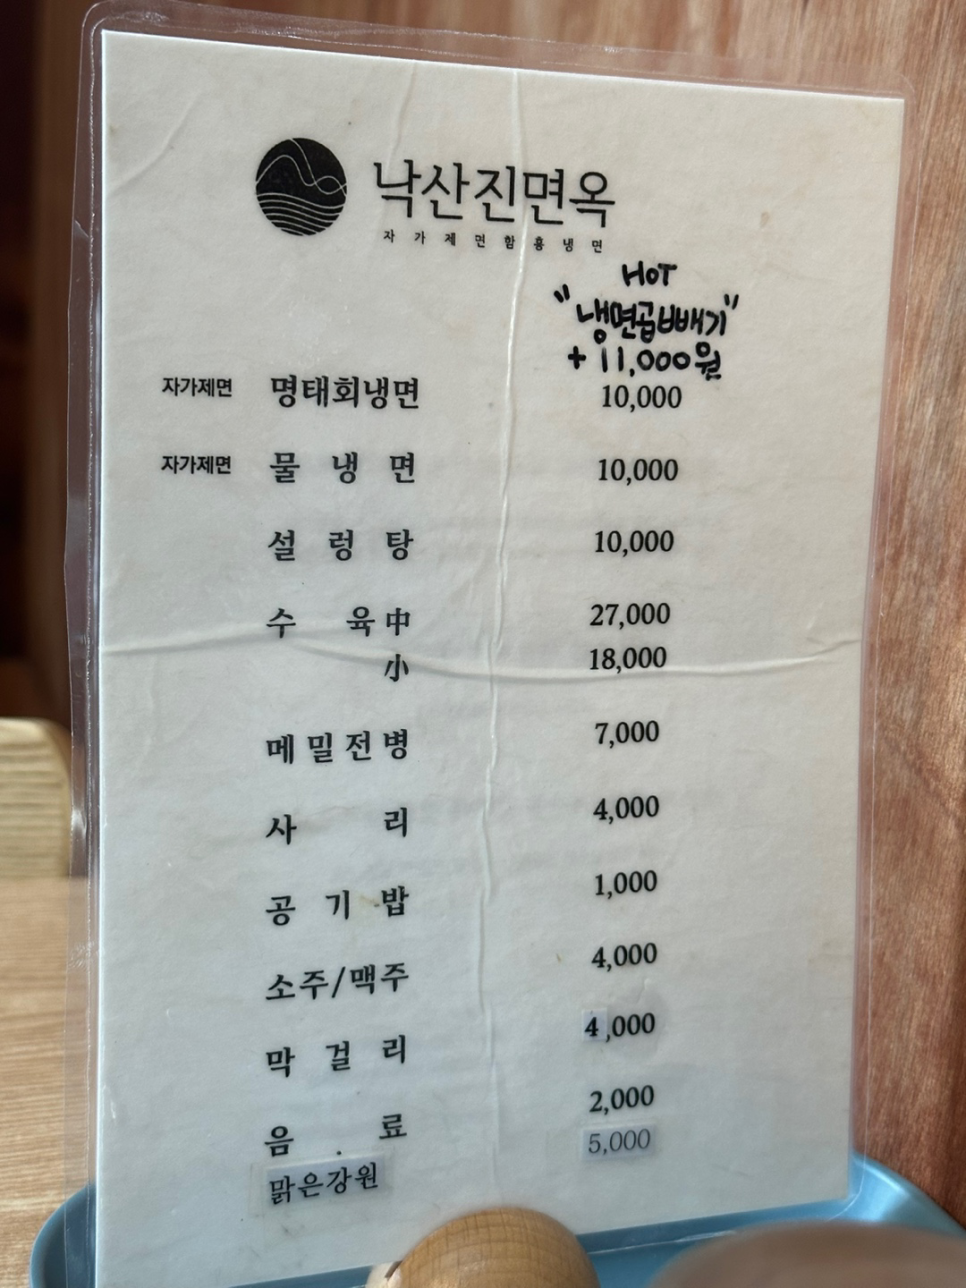 낙산진면옥
자가제면함흥냉면
HOT
"냉면곱빼기"
+11,000원
자가제면 명태회냉면 10,000
자가제면 물냉면 10,000
설렁탕 10,000
수육中 27,000
小 18,000
메밀전병 7,000
사리 4,000
공기밥 1,000
소주/맥주 4,000
막걸리 4,000
음료 2,000
맑은강원 5,000